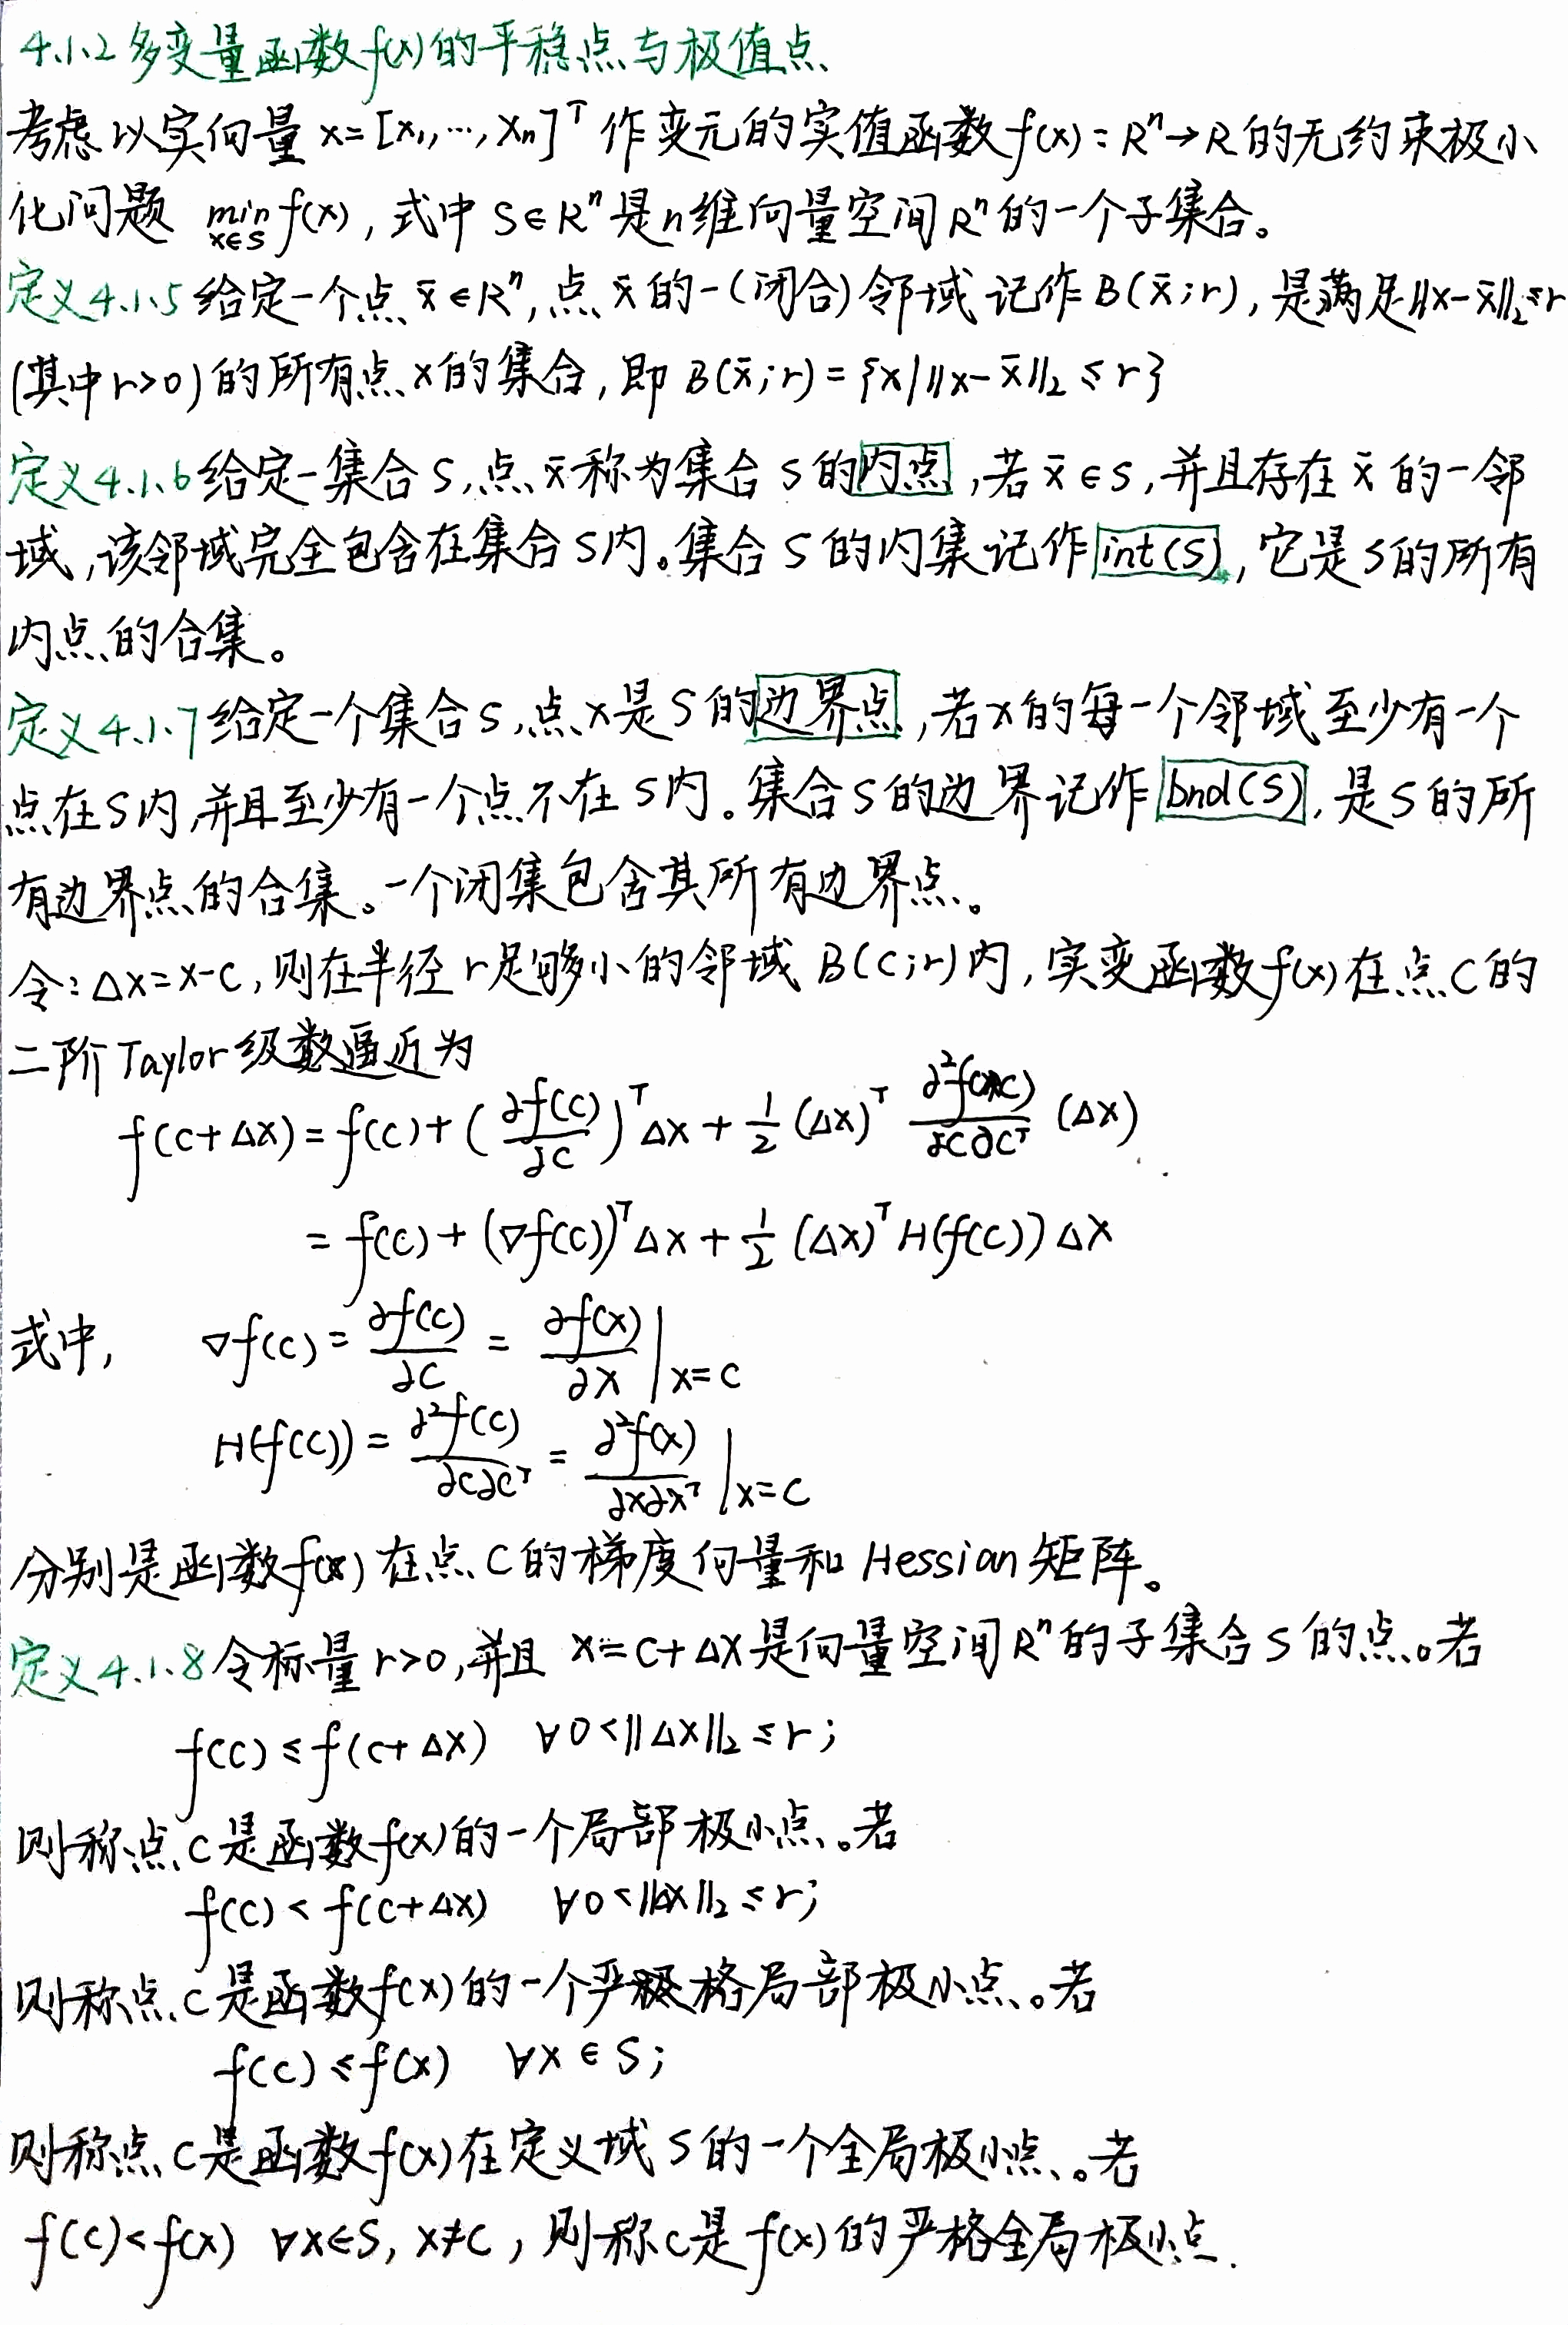 4.1.2 多变量函数f(x)的平稳点与极值点
考虑以实向量 x=[x₁,…,xₙ]ᵀ 作变元的实值函数f(x):Rⁿ→R的无约束极小
化问题 min_{x∈S} f(x), 式中 S∈Rⁿ是n维向量空间Rⁿ的一个子集合。
定义4.1.5 给定一个点 x̄∈Rⁿ,点x̄的一(闭合)邻域 记作B(x̄;r),是满足‖x-x̄‖₂≤r
(其中r>0)的所有点x的集合,即 B(x̄;r)={x|‖x-x̄‖₂≤r}
定义4.1.6 给定一集合S,点x̄称为集合S的内点,若x̄∈S,并且存在x̄的一邻
域,该邻域完全包含在集合S内。集合S的内集记作int(S),它是S的所有
内点的合集。
定义4.1.7 给定一个集合S,点x是S的边界点,若x的每一个邻域至少有一个
点在S内,并且至少有一个点不在S内。集合S的边界记作bnd(S),是S的所
有边界点的合集。一个闭集包含其所有边界点。
令:Δx=x-c,则在半径r足够小的邻域B(c;r)内,实变函数f(x)在点c的
二阶Taylor级数逼近为
f(c+Δx)=f(c)+(∂f(c)/∂c)ᵀΔx+1/2(Δx)ᵀ ∂²f(c)/∂c∂cᵀ (Δx)
=f(c)+(∇f(c))ᵀΔx+1/2(Δx)ᵀH(f(c))Δx
式中, ∇f(c)=∂f(c)/∂c=∂f(x)/∂x|x=c
H(f(c))=∂²f(c)/∂c∂cᵀ=∂²f(x)/∂x∂xᵀ|x=c
分别是函数f(x)在点c的梯度向量和Hessian矩阵。
定义4.1.8 令标量r>0,并且 x=c+Δx是向量空间Rⁿ的子集合S的点。若
f(c)≤f(c+Δx) ∀0<‖Δx‖₂≤r;
则称点c是函数f(x)的一个局部极小点。若
f(c)<f(c+Δx) ∀0<‖Δx‖₂≤r;
则称点c是函数f(x)的一个严格局部极小点。若
f(c)≤f(x) ∀x∈S;
则称点c是函数f(x)在定义域S的一个全局极小点。若
f(c)<f(x) ∀x∈S, x≠c, 则称c是f(x)的严格全局极小点.